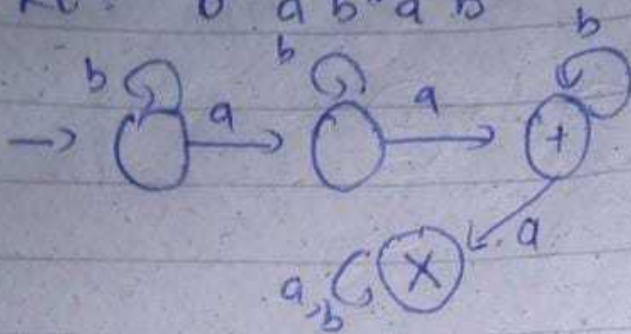 b a b a b
b b b
a a
+
a
X
a, b